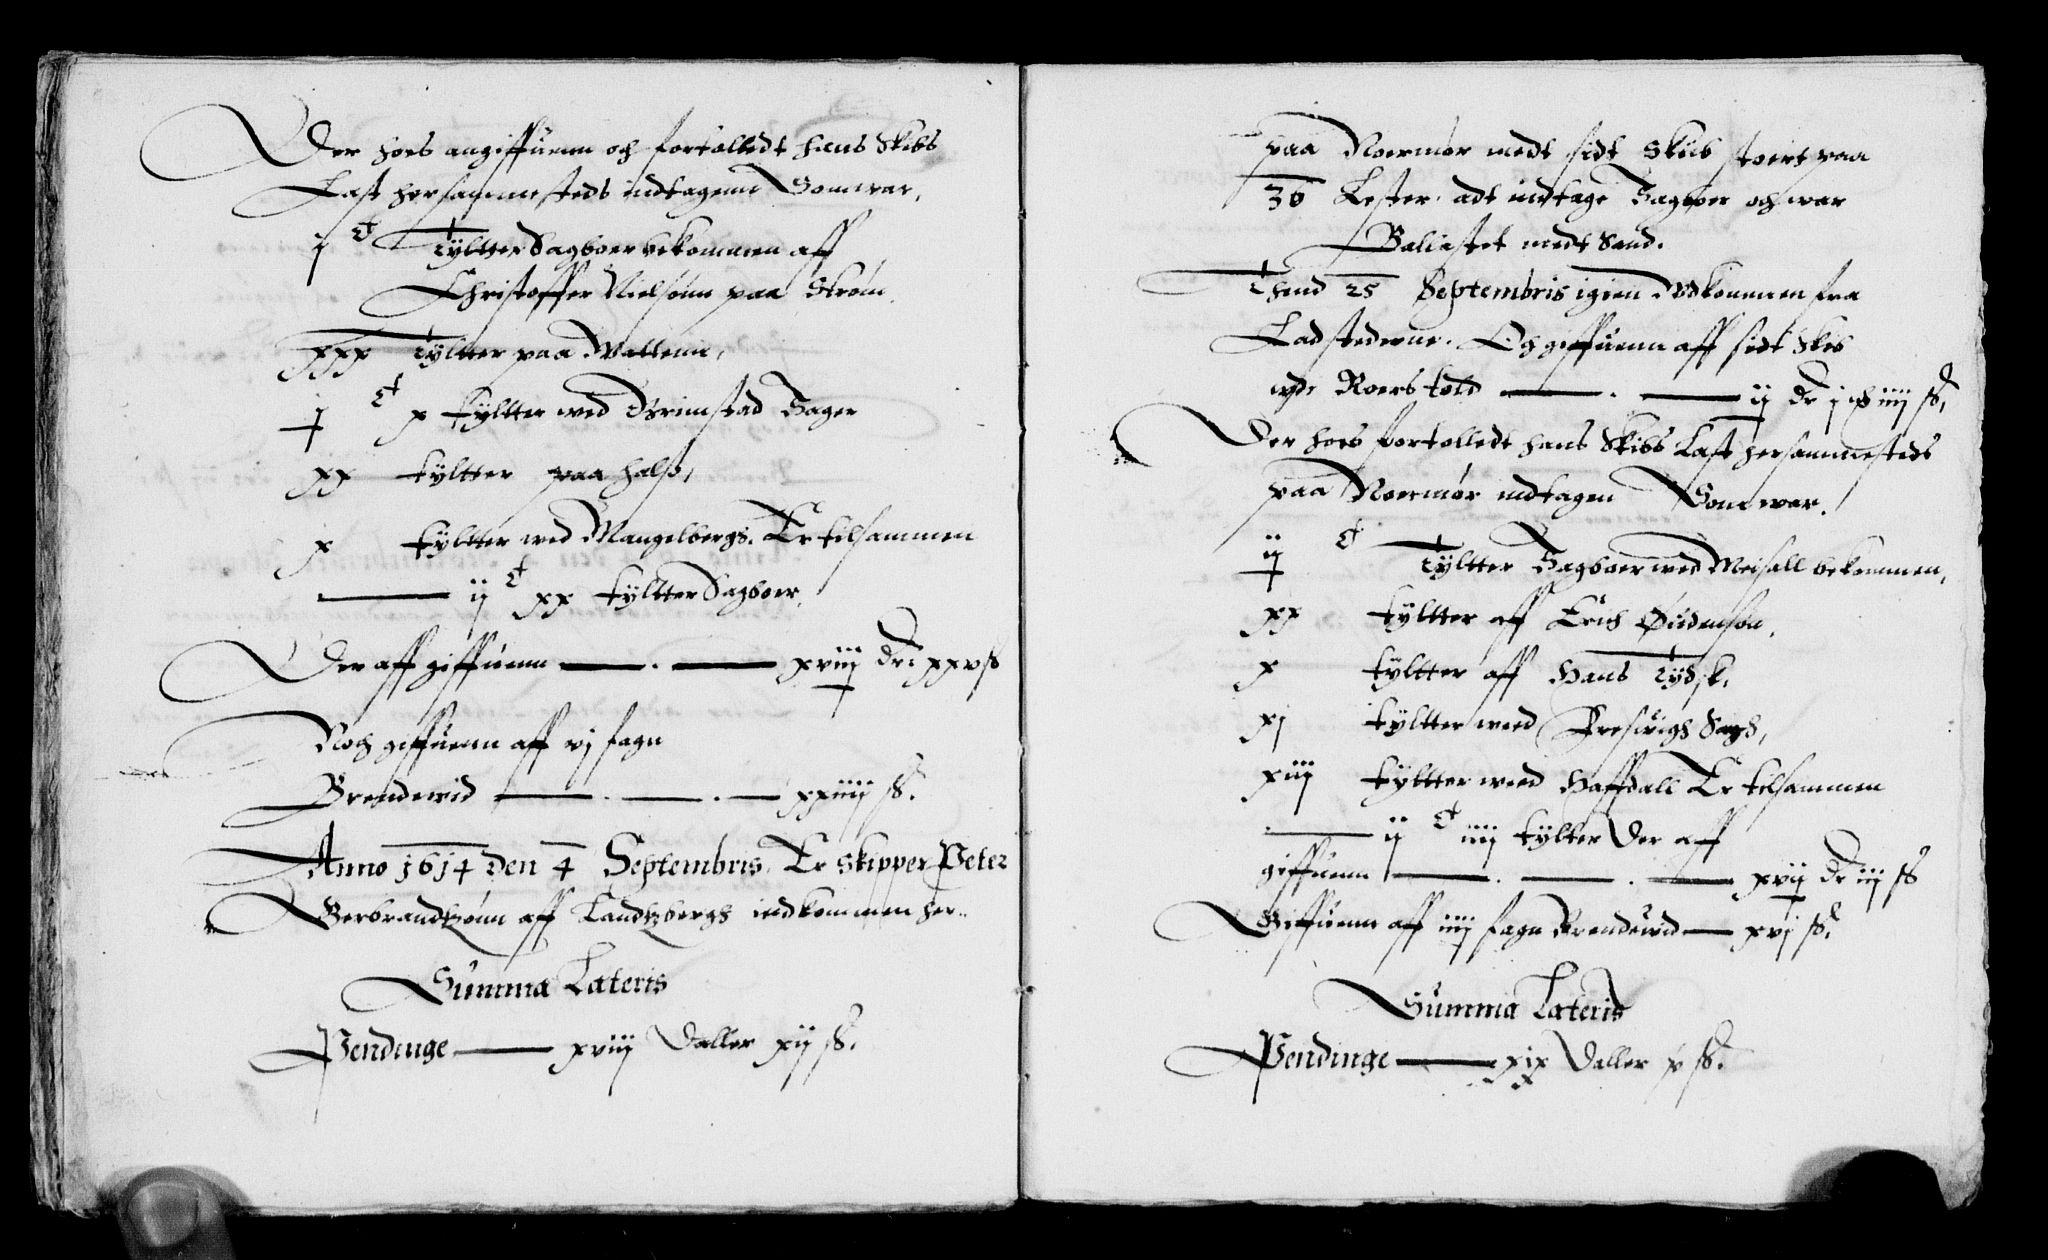 Der hoes angiffuenn och fortolledt hans Skibs
Last hersammesteds indtagenn Somwar,
j C Tÿltter Sagboer bekommen aff
Christoffer Nielsönn paa Ström.
xxx Tÿltter paa Wattenn,
j C x tÿltter wed Brimstad Sager
xx tÿltter paa halsö,
x tÿltter wed Mangelbergs. Er tilsammen
ij C xx tÿltter Sagboer.
Der aff giffuenn xviij dr: xxv ß
Noch giffuenn aff vj fagn
Brendewid xxiiij ß.
Anno 1614 den 4 Septembris. Er Skipper Peter
Gerbrandtzönn aff Landtzbergh indkommen her..
Summa Lateris
Pendinge xviij Daller xij ß.
paa Noermör medt sidt Skib stoert paa
36 Lester. adt indtage Sagboer och war
Baliastet medt Sand.
Thend 25 Septembris igien Udkommen fra
Ladstederne. Och giffuenn aff sidt Skib
udj Roers told ij dr j ort iiij ß,
Der hoes fortolledt hans Skibs Last hersammesteds
paa Noermör indtagen Somwar.
ij C Tÿltter Sagboer wed Meisall bekommen,
xx tÿltter aff Erich Øudensön,
x tÿltter aff Hans Tÿdsk,
xj tÿltter weed Fresuigh Sagh,
xiij tÿltter weed Haffdall Er tilsammen
ij C iiij tÿlter Der aff
giffuenn xvij dr iij ß
Giffuenn aff iiij fagn Brendewid xvj ß.
Summa Lateris
Pendinge xix Daller x ß.